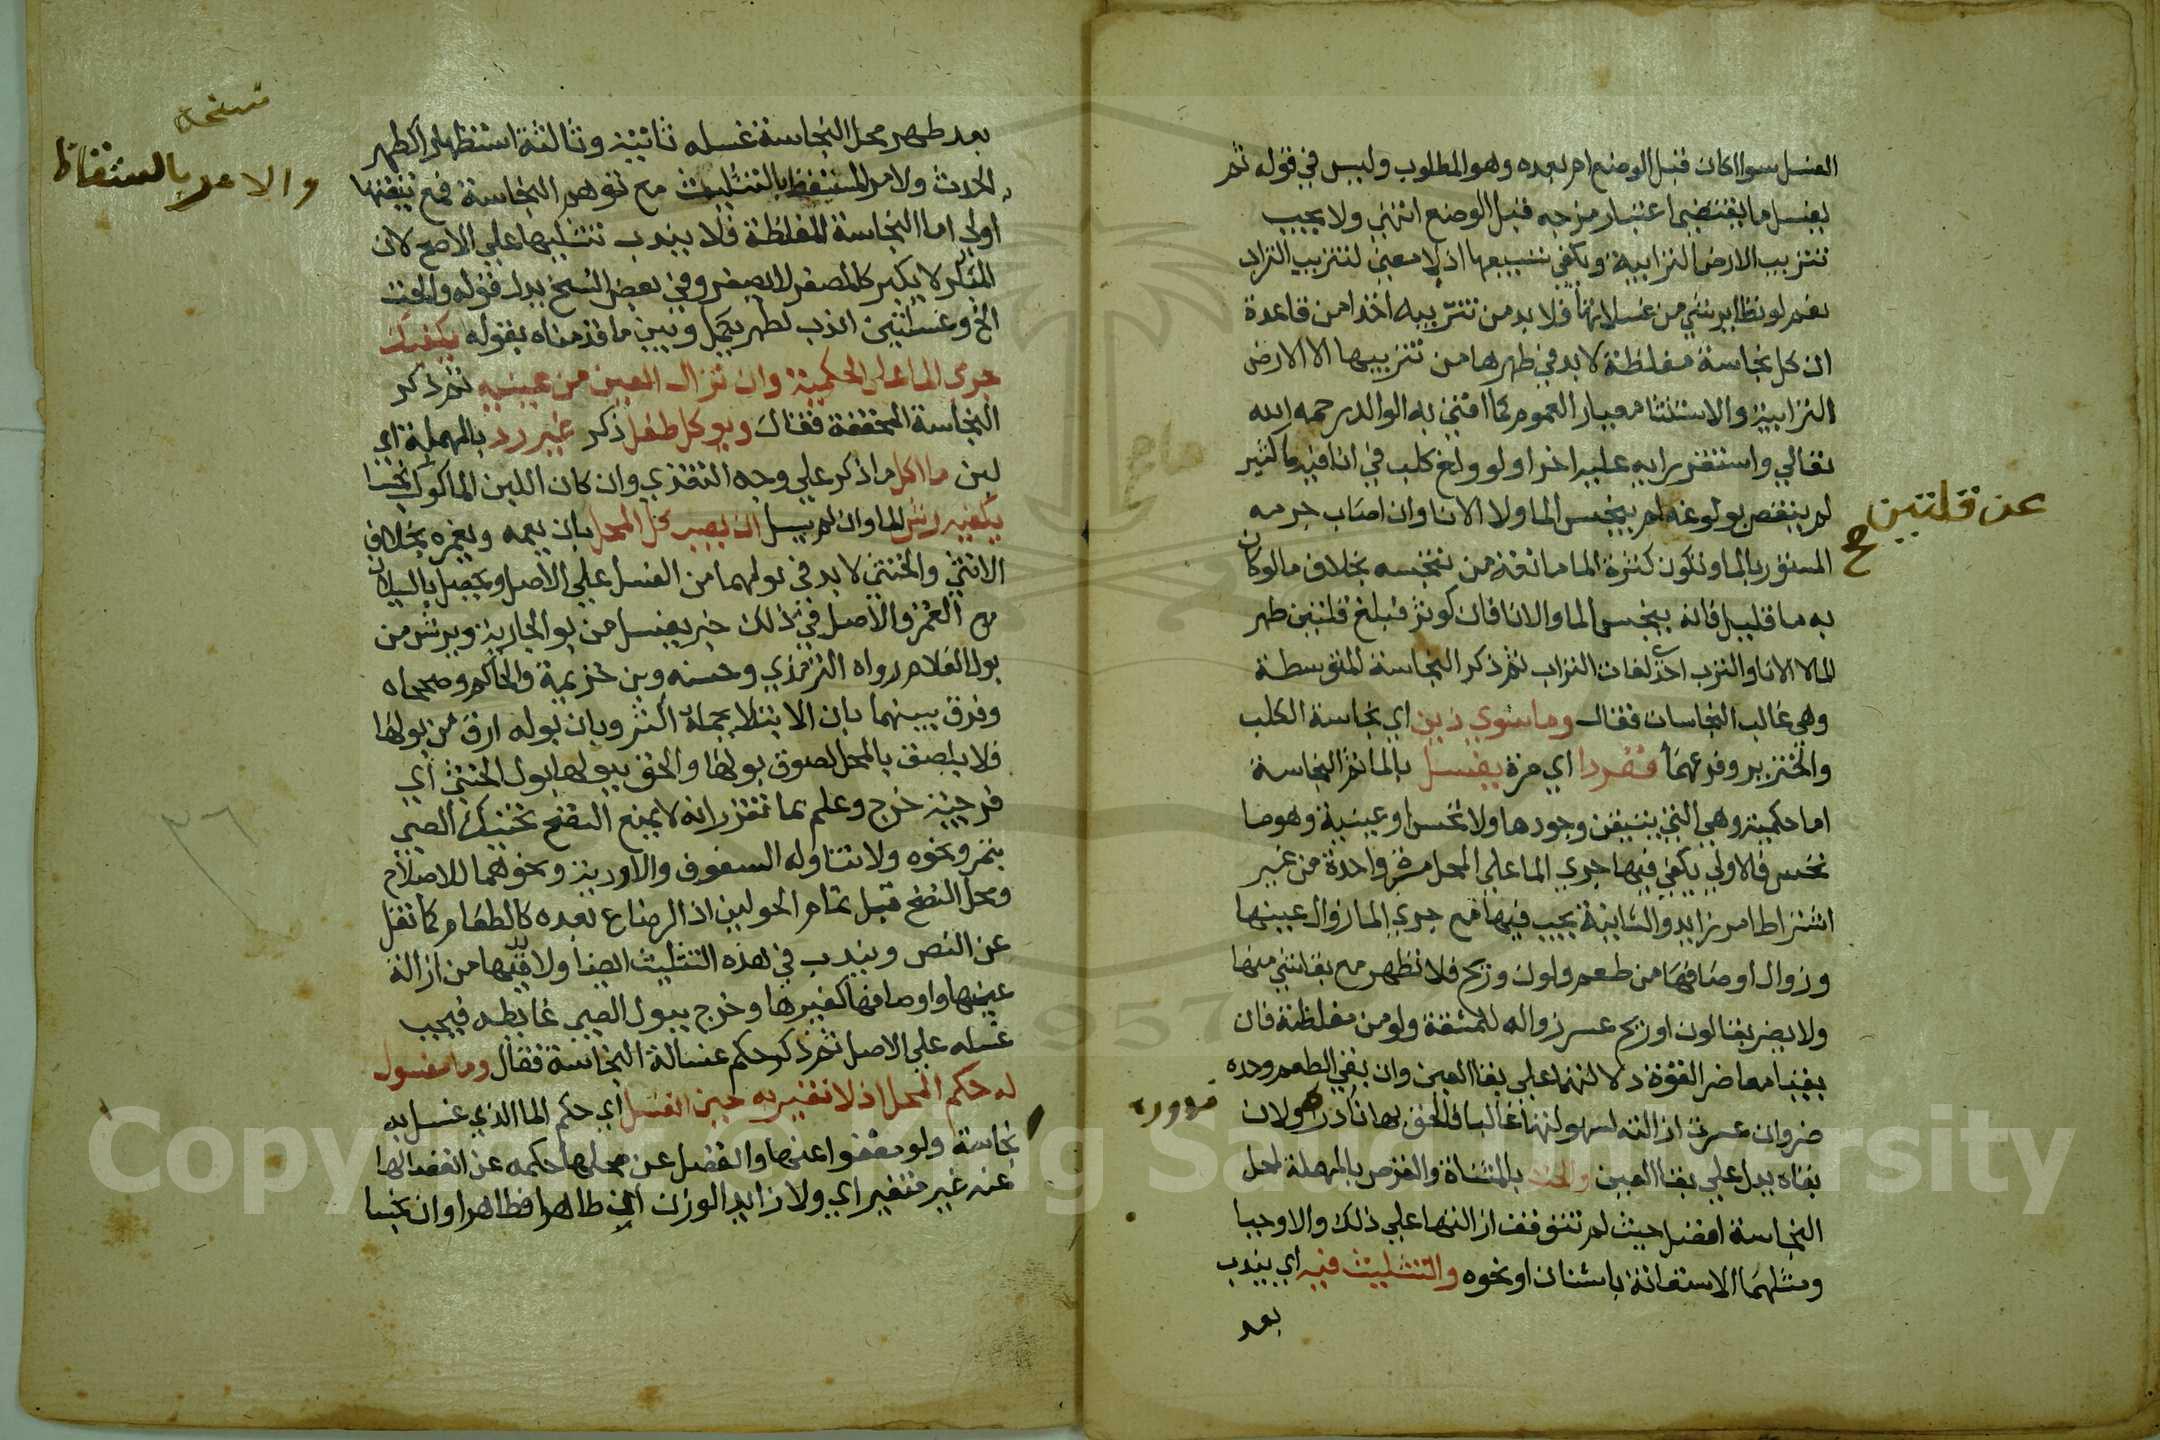 الغسل سوا اكان قبل الوضع ام بعده وهو المطلوب وليس في قوله ثم
يغسل ما يقتضي اعتبار مزجه قبل الوضع انتهي ولا يجب
تتريب الارض الترابية ويكفي تسبيعها اذ لا معني لتتريب التراب
نعم لو تطاير شي من غسلاتها فلا بد من تتريبه اخذا من قاعدة
ان كل نجاسة مغلظة لا بد في طهرها من تتريبها الا الارض
الترابية والاستثنا معيار العموم كما افتي به الوالد رحمه الله
تعالي واستقر رايه عليه اخرا ولو ولغ كلب في انا فيه ما كثير
لم ينقص بولوغه لم ينجس الما ولا الانا وان اصاب جرمه
عن قلتين صح
المستور بالما وتكون كثرة الما مانعة من تنجسه بخلاف ما لو كان
به ما قليل فانه ينجس الما والانا فان كوثر فبلغ قلتين طهر
الما لا الانا والترب احدي لغات التراب ثم ذكر النجاسة المتوسطة
وهي غالب النجاسات فقال وما سوي ذين اي نجاسة الكلب
والخنزير وفرعهما ففردا اي مرة يغسل بالما ثم النجاسة
اما حكمية وهي التي يتيقن وجودها ولا تحس او عينية وهو ما
تحس فالاولي يكفي فيها جري الما علي المحل مرة واحدة من غير
اشتراط امر زايد والثانية يجب فيها مع جري الما زوال عينها
وزوال اوصافها من طعم ولون وريح فلا تطهر مع بقا شي منها
ولا يضر بقا لون او ريح عسر زواله للمشقة ولو من مغلظة فان
بقيا معا ضر لقوة دلالتهما علي بقا العين وان بقي الطعم وحده
ضر وان عسرت ازالته لسهولتها غالبا فالحق بها نادرها ولان
بقاه يدل علي بقا العين والحت بالمثناة والقرص بالمهملة لمحل
النجاسة افضل حيث لم تتوقف ازالتها علي ذلك والا وجبا
ومثلهما الاستعانة باشنان او نحوه والتثليث فيه اي يندب
بعد
بعد طهر محل النجاسة غسله ثانية وثالثة استظهارا كطهر
نسخة
والامر بالستقاظ
الحدث ولامر المستيقظ بالتثليث مع توهم النجاسة فمع تيقنها
اولي اما النجاسة المغلظة فلا يندب تثليثها علي الاصح لان
المكبر لا يكبر كالمصغر لا يصغر وفي بعض النسخ بدل قوله والحت
الخ وغسلتين اندب لطهر يكمل وبين ما قدمناه بقوله يكفيك
جري الما علي الحكمية وان تزال العين من عينيه ثم ذكر
النجاسة المخففة فقال وبول طفل ذكر غير رد بالمهملة اي
لبن ما اكل ما ذكر علي وجه التغذي وان كان اللبن الماكول نجسا
يكفيه رش الما وان لم يسل ان يصب كل المحل بان يعمه ويغمره بخلاف
الانثي والخنثي لا بد في بولهما من الغسل علي الاصل ويحصل بالسيلان
مع الغمر والاصل في ذلك خبر يغسل من بول الجارية ويرش من
بول الغلام رواه الترمذي وحسنه وبن خزيمة والحاكم وصححاه
وفرق بينهما بان الابتلا بحمله اكثر وبان بوله ارق من بولها
فلا يلصق بالمحل لصوق بولها والحق ببولها بول الخنثي اي
فرجيه خرج وعلم بما تقرر انه لا يمنع النضح تحنيك الصبي
بتمر ونحوه ولا تناوله السفوف والادوية ونحوهما للاصلاح
ومحل النضح قبل تمام الحولين اذ الرضاع بعده كالطعام كما نقل
عن النص ويندب في هذه التثليث ايضا ولا بد فيها من ازالة
عينها واوصافها كغيرها وخرج ببول الصبي غايطه فيجب
غسله علي الاصل ثم ذكر حكم غسالة النجاسة فقال وما مغسول
له حكم المحل اذ لا تغير به حين انفصل اي حكم الما الذي غسل به
نجاسة ولو معفوا عنها وانفصل عن محلها حكمه عن انفصالها
عنه غير متغير اي ولا زايد الوزن ان طاهرا فطاهرا وان نجسا